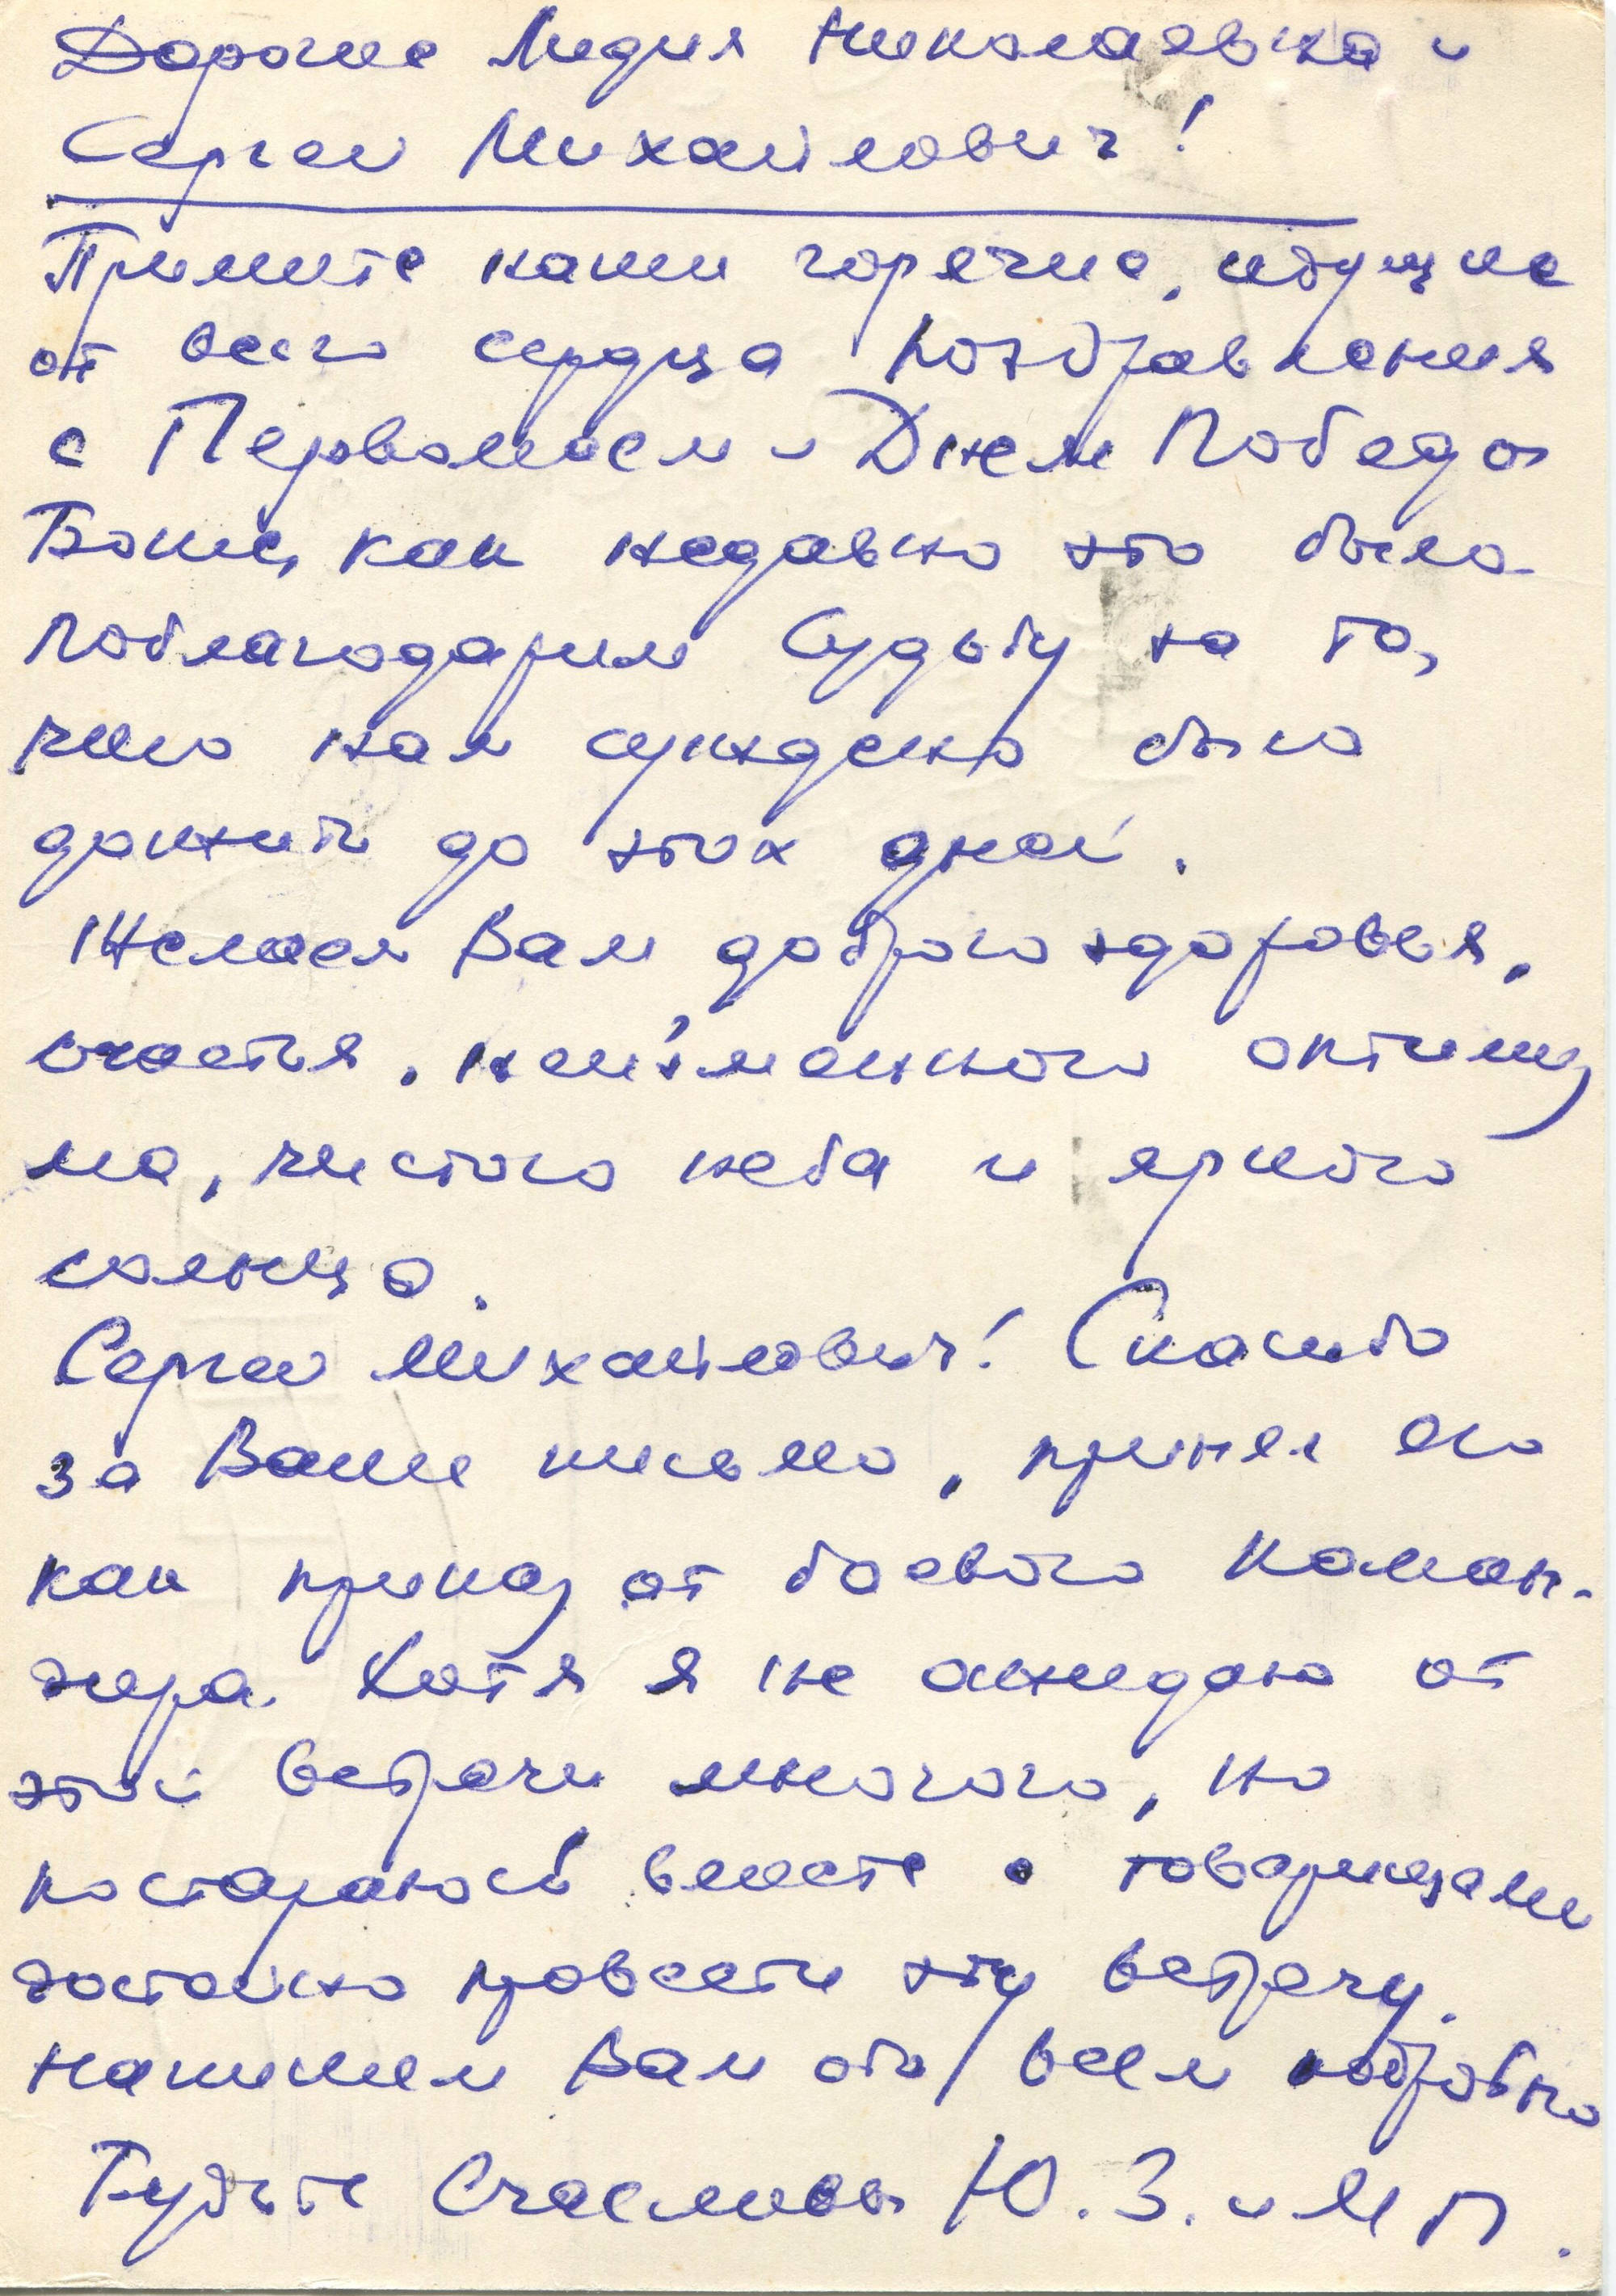 Дорогие Лидия Николаевна и
Сергей Михайлович!
Примите наши горячие, идущие
от всего сердца поздравления
с Первомаем и Днем Победы
Боже, как недавно это было.
Поблагодарим Судьбу за то,
что нам суждено было
дожить до этих дней.
Желаем Вам доброго здоровья,
счастья, неизменного оптимиз
ма, чистого неба и яркого
солнца.
Сергей Михайлович! Спасибо
за Ваше письмо, принял его
как приказ от боевого коман-
дира. Хотя я не ожидаю от
этой встречи многого, но
постараюсь вместе с товарищами
достойно провести эту встречу.
Напишем Вам обо всем подробно
Будьте счасливы Ю. З. и М П.